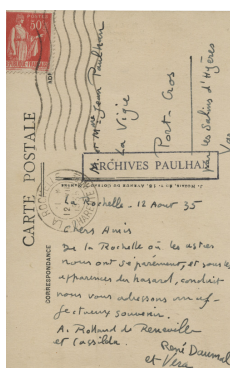 POSTES
50c
CARTE POSTALE
CORRESPONDANCE
M. et Mme Jean Paulhan
La Vigie
Port-Cros
par les Salins d'Hyères
Var
ARCHIVES PAULHAN
LA ROCHELLE
La Rochelle - 12 Août 35
Chers Amis
De La Rochelle où les astres
nous ont séparément, et sous les
apparences du hasard, conduit
nous vous adressons un af-
fectueux souvenir.
A. Rolland de Renéville
et Cassilda.
René Daumal
et Vera